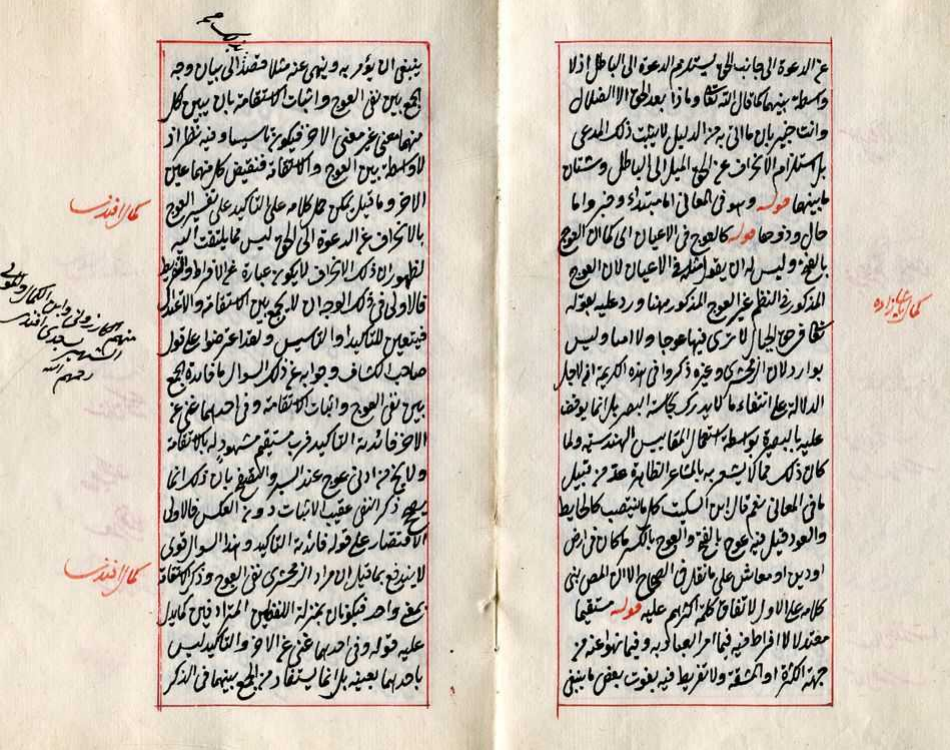 عن الدعوة الى جانب الحق يستلزم الدعوة الى الباطل اذ لا
واسطة بينهما كما قال الله تعالى وماذا بعد الحق الا الضلال
وانت خبير بان ما اتى به من الدليل لا يثبت ذلك المدعى
بل استلزام الانحراف عن الحق الميل الى الباطل وشتان
ما بينهما قوله وهو فى المعانى اما مبتدأ وخبر واما
حال وذو حا قوله كالعوج فى الاعيان اى كما ان العوج
بالفتح وليس له ان يقول مثله فى الاعيان لان العوج
المذكور فى النظم غير العوج المذكور ههنا ورد عليه بقوله
تعالى فى حق الجبال لا ترى فيها عوجا ولا امتا وليس
بوارد لان الزمخشرى وغيره ذكروا فى هذه الكريمة انه لاجل
الدلالة على انتفاء ما لا يدرك بحاسة البصر بل انما يوقف
عليه بالبصيرة بواسطة استعمال المقاييس الهندسية ولما
كان ذلك مما لا يشعر به بالمشاعر الظاهرة عد من قبيل
ما فى المعانى نعم قال ابن السكيت كل ما ينتصب كالحايط
والعود قيل فيه عوج بالفتح والعوج بالكسر ما كان فى ارض
او دين او معاش على ما نقل فى الصحاح الا ان المص بنى
كلامه على الاول لاتفاق كلمة اكثرهم عليه قوله مستقيما
معتدلا لا افراط فيه فيما امر العباد به وفيما نهوا عنه من
جهة الكثرة او المشقة ولا تفريط فيه بفوت بعض ما ينبغى
كمال باشا زاده
ينبغى ان يؤمر به وينهى عنه مثلا قصدا الى بيان وجه
الجمع بين نفى العوج واثبات الاستقامة بان يبين كل
منهما معنى غير معنى الاخر فيكون تاسيسا وفيه نظر اذ
لا واسطة بين العوج والاستقامة فنقيض كل منهما عين
الاخر وما قيل يمكن حمل كلامه على التاكيد على تفسير العوج
بالانحراف عن الدعوة الى الحق ليس مما يلتفت اليه
لظهور ان ذلك الانحراف لا يكون عبارة عن الافراط والتفريط
فالاولى فى ذلك الوجه ان لا يجمع بين الاستقامة والاعتدال
فيتعين للتاكيد او التاسيس وقد اعترضوا على قول
صاحب الكشاف وجوابه عن ذلك السوال ما فائدة الجمع
بين نفى العوج واثبات الاستقامة وفى احدهما غنى عن
الاخر فائدته التاكيد فرب مستقيم مشهود له بالاستقامة
ولا يخ من ادنى عوج عند السبر والتصفح بان ذلك انما
يصح ذكر النفى عقيب الاثبات دون العكس فالاولى
الاقتصار على قوله فائدته التاكيد وهذا السوال قوى
لا يندفع بما قيل ان مراد الزمخشرى نفى العوج وذكر الاستقامة
بمعنى واحد فيكونان بمنزلة اللفظين المترادفين كما يدل
عليه قوله وفى احدهما غنى عن الاخر والتاكيد ليس
باحدهما بعينه بل انما يستفاد من الجمع بينهما فى الذكر
كمال افندى
منهم الكازرونى وابن الكمال والمولى
الشهير بسعدى افندى
رحمهم الله
كمال افندى